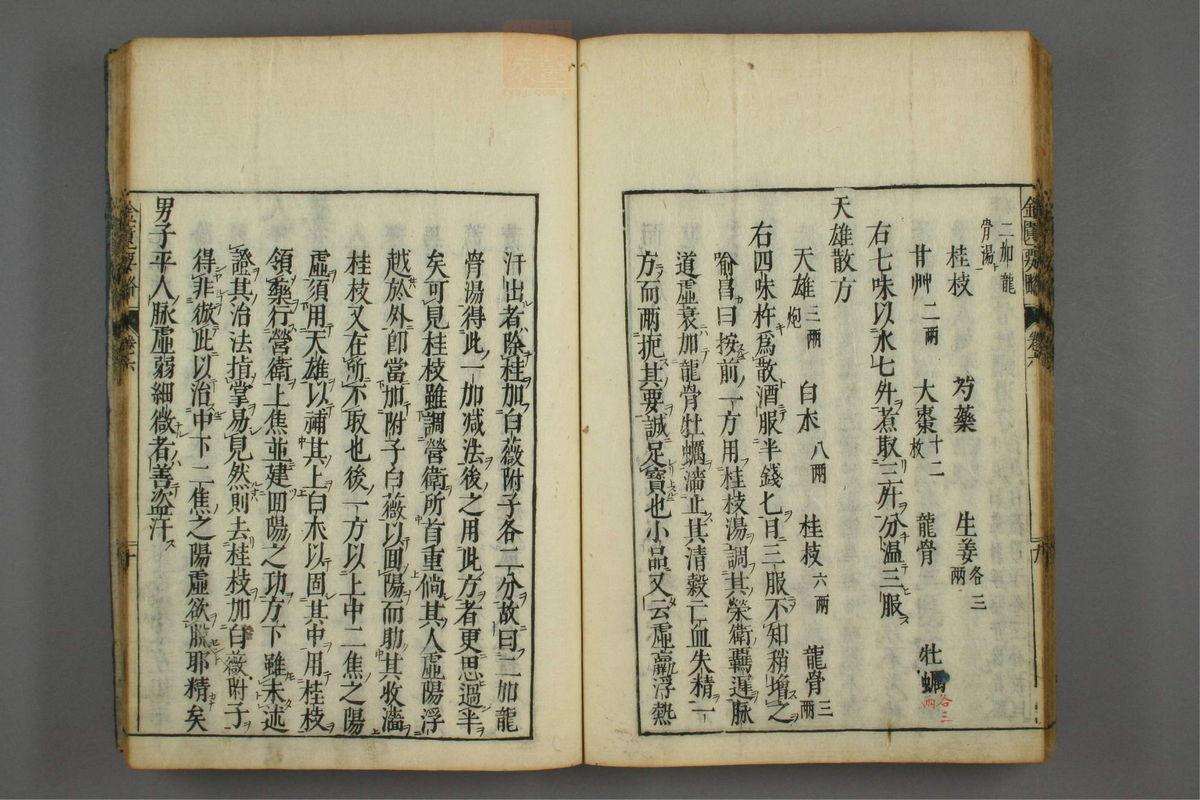 金匱要略 卷六 九
二加龍
骨湯
桂枝 芍藥 生姜各三兩
甘艸二兩 大棗十二枚 龍骨三 牡蠣各三兩
右七味以水七升煮取三升分温三服
天雄散方
天雄三兩炮 白朮八兩 桂枝六兩 龍骨三兩
右四味杵爲散酒服半錢七日三服不知稍增之
喻昌曰按前一方用桂枝湯調其榮衛羈遲脉
道虛衰加龍骨牡蠣濇止其清穀亡血失精一
方而兩扼其要誠足寶也小品又云虛羸浮熱
汗出者除桂加白薇附子各二分故曰二加龍
骨湯得此一加减法後之用此方者更思過半
矣可見桂枝雖調營衛所首重倘其人虛陽浮
越於外即當加附子白薇以囬陽而助其收濇
桂枝又在所不取也後一方以上中二焦之陽
虛須用天雄以補其上白朮以固其中用桂枝
領藥行營衛上焦並建囬陽之功方下雖未述
證其治法指掌易見然則去桂枝加白薇附子
得非倣此以治中下二焦之陽虛欲脫耶精矣
男子平人脉虛弱細微者善盜汗
金匱要略 卷六 十